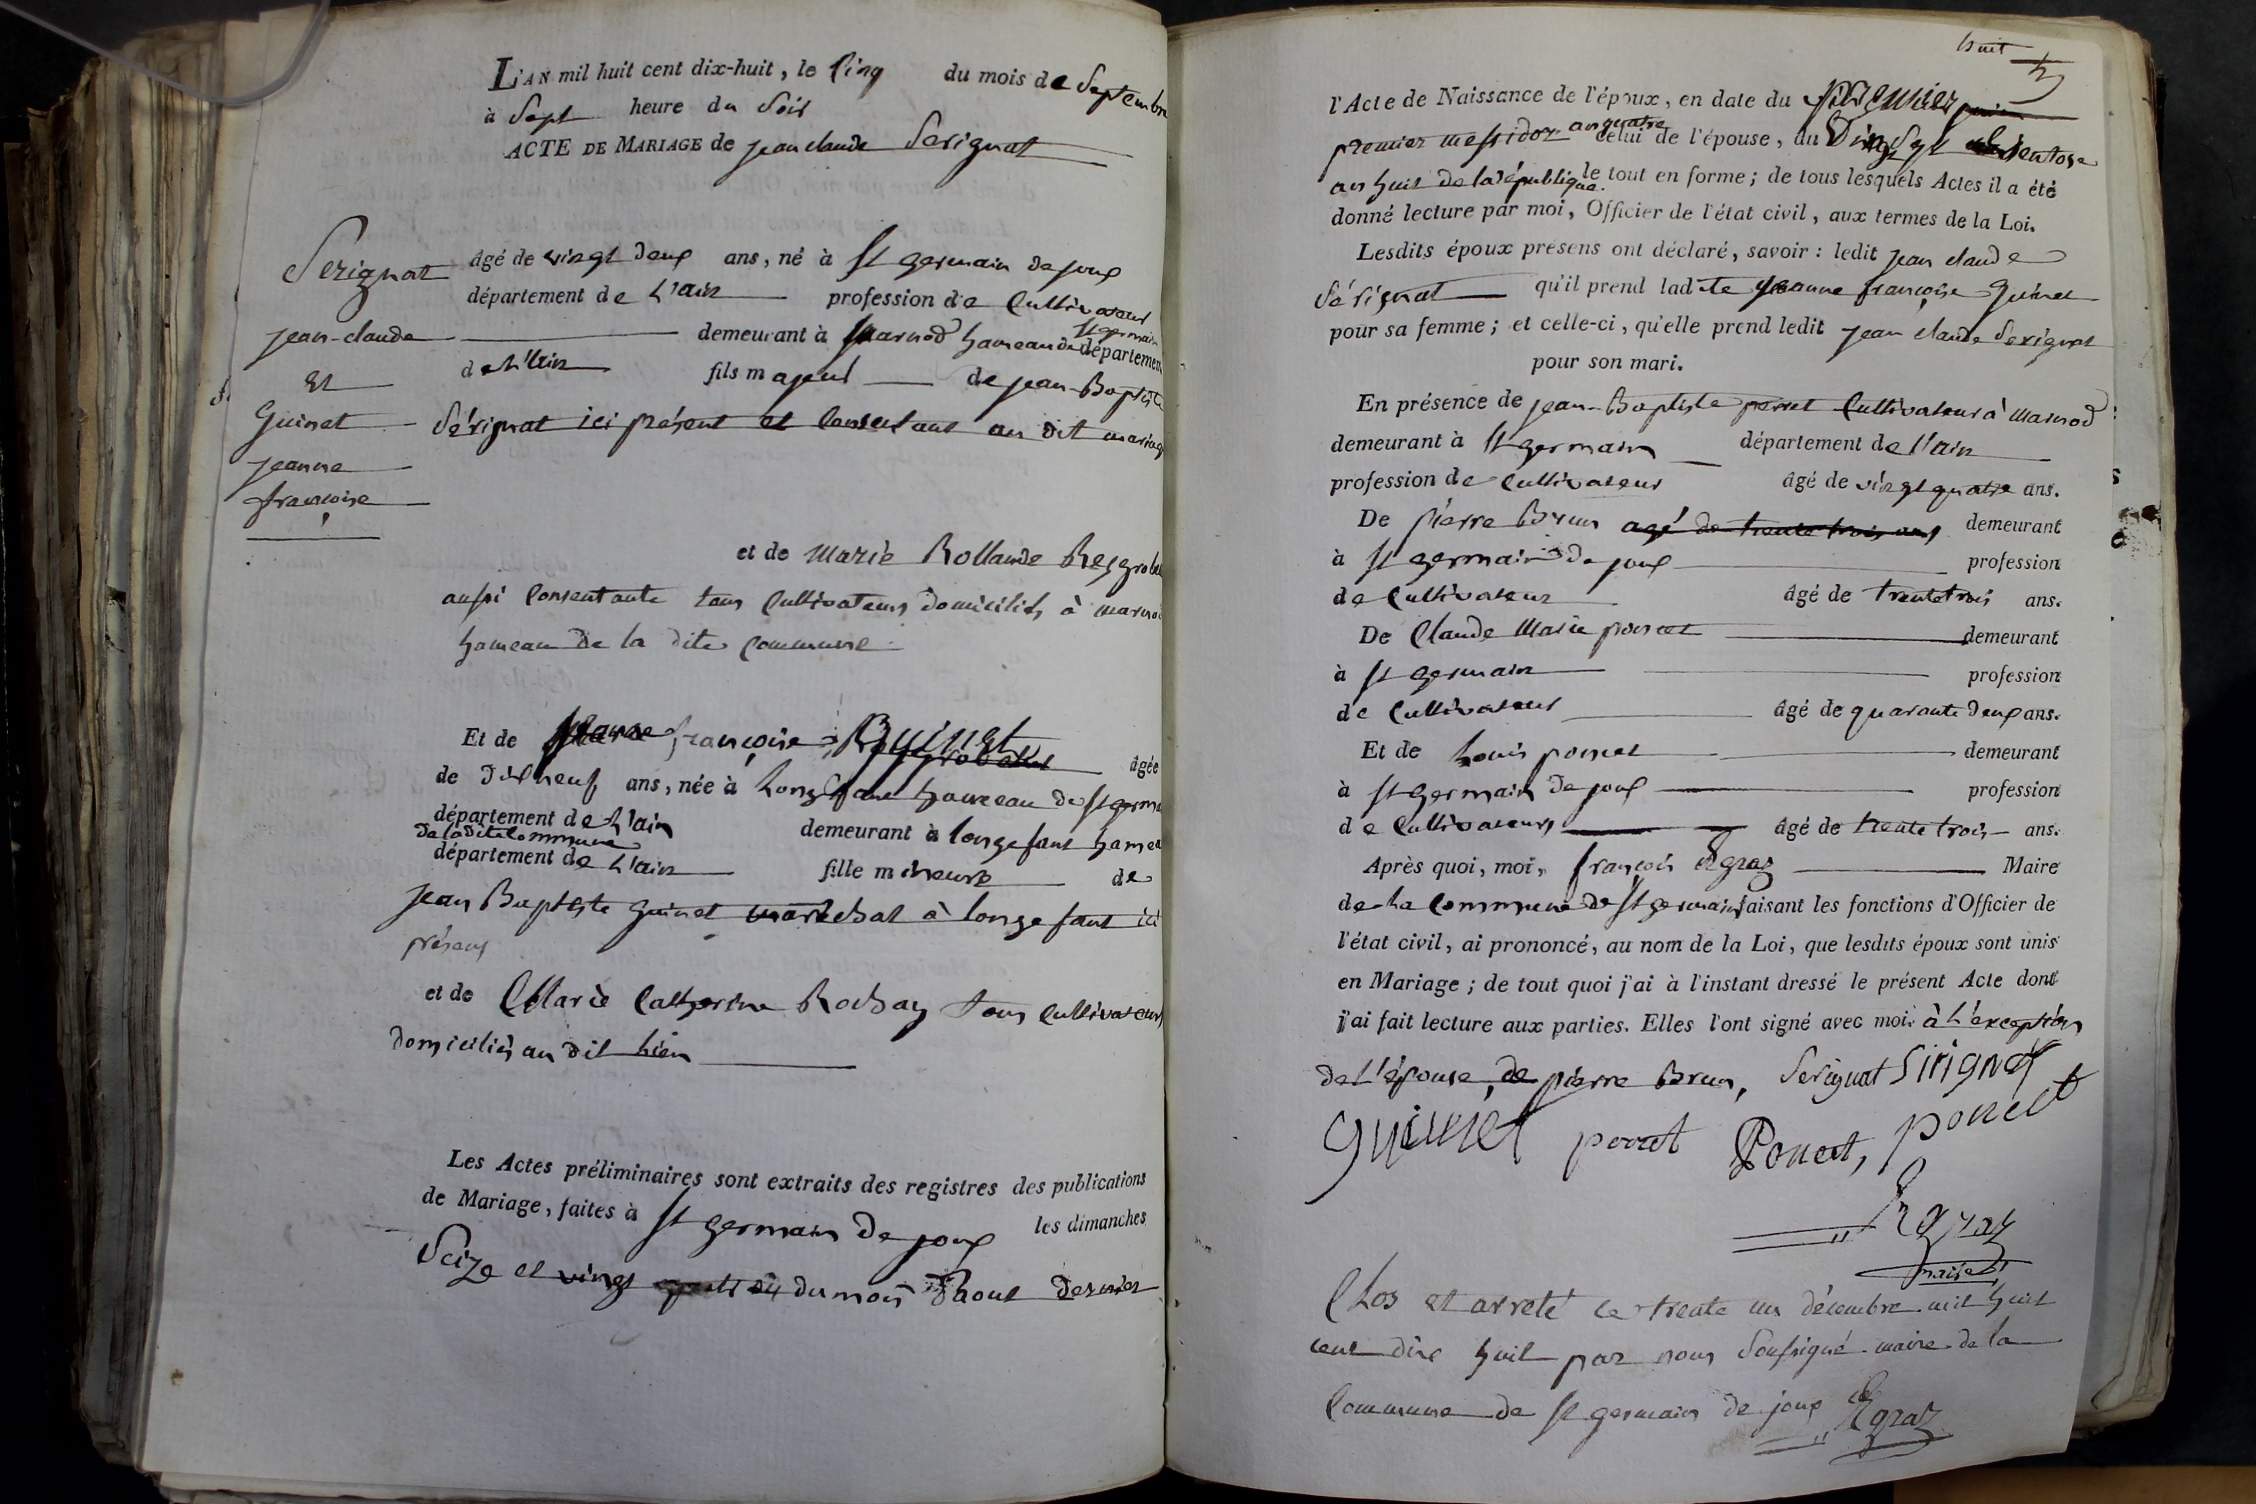 L'AN mil huit cent dix-huit, le Cinq du mois de Septembre
à Sept heure du Soir
ACTE DE MARIAGE de jean claude Serignat
Serignat
jean-claude
Et
Guinet
jeanne
françoise
âgé de vingt deux ans, né à St germain de joux
département de L'ain profession de Cultivateur
demeurant à Marnod hameau de St germain département
de L'ain fils majeur de jean-Baptiste
Sérignat ici présent et Consentant au dit mariage
et de Marie Rollande
aussi Consentante tous Cultivateurs domiciliés à marnod
hameau de la dite Commune
Et de jeanne françoise Guinet âgée
de dix neuf ans, née à Longefant hameau de St germain
département de L'ain demeurant à longefant hameau
de la dite Commune
département de L'ain fille mineure de
jean Baptiste Guinet maréchal à longefant ici
présent
et de Marie Catherine Rochay tous Cultivateurs
domiciliés au dit lieu
Les Actes préliminaires sont extraits des registres des publications
de Mariage, faites à St germain de joux les dimanches
Seize et vingt du mois d'aout dernier
huit
l'Acte de Naissance de l'époux, en date du premier
premier messidor an quatre celui de l'épouse, du Ving Sept ventose
an huit de la république. le tout en forme; de tous lesquels Actes il a été
donné lecture par moi, Officier de l'état civil, aux termes de la Loi.
Lesdits époux présens ont déclaré, savoir : ledit jean claude
Sérignat qu'il prend ladite jeanne françoise Guinet
pour sa femme; et celle-ci, qu'elle prend ledit jean claude Serignat
pour son mari.
En présence de jean-Baptiste perret Cultivateur à marnod
demeurant à St germain département de l'ain
profession de Cultivateur âgé de vingt quatre ans.
De pierre Brun agé de trente trois ans demeurant
à St germain de joux profession
de Cultivateur âgé de trente trois ans.
De Claude Marie poncet demeurant
à St germain profession
de Cultivateur âgé de quarante deux ans.
Et de Louis poncet demeurant
à St germain de joux profession
de Cultivateurs âgé de trente trois ans.
Après quoi, moi, françois Egraz Maire
de La Commune de St germain faisant les fonctions d'Officier de
l'état civil, ai prononcé, au nom de la Loi, que lesdits époux sont unis
en Mariage; de tout quoi j'ai à l'instant dressé le présent Acte dont
j'ai fait lecture aux parties. Elles l'ont signé avec moi. à L'exception
de L'épouse, de pierre Brun, Serignat Sirignat
Guinet perret Poncet, poncet
Egraz
maire
Clos et arreté ce trente un décembre mil huit
cent dix huit par nous Soussigné maire de la
Commune de St germain de joux
Egraz